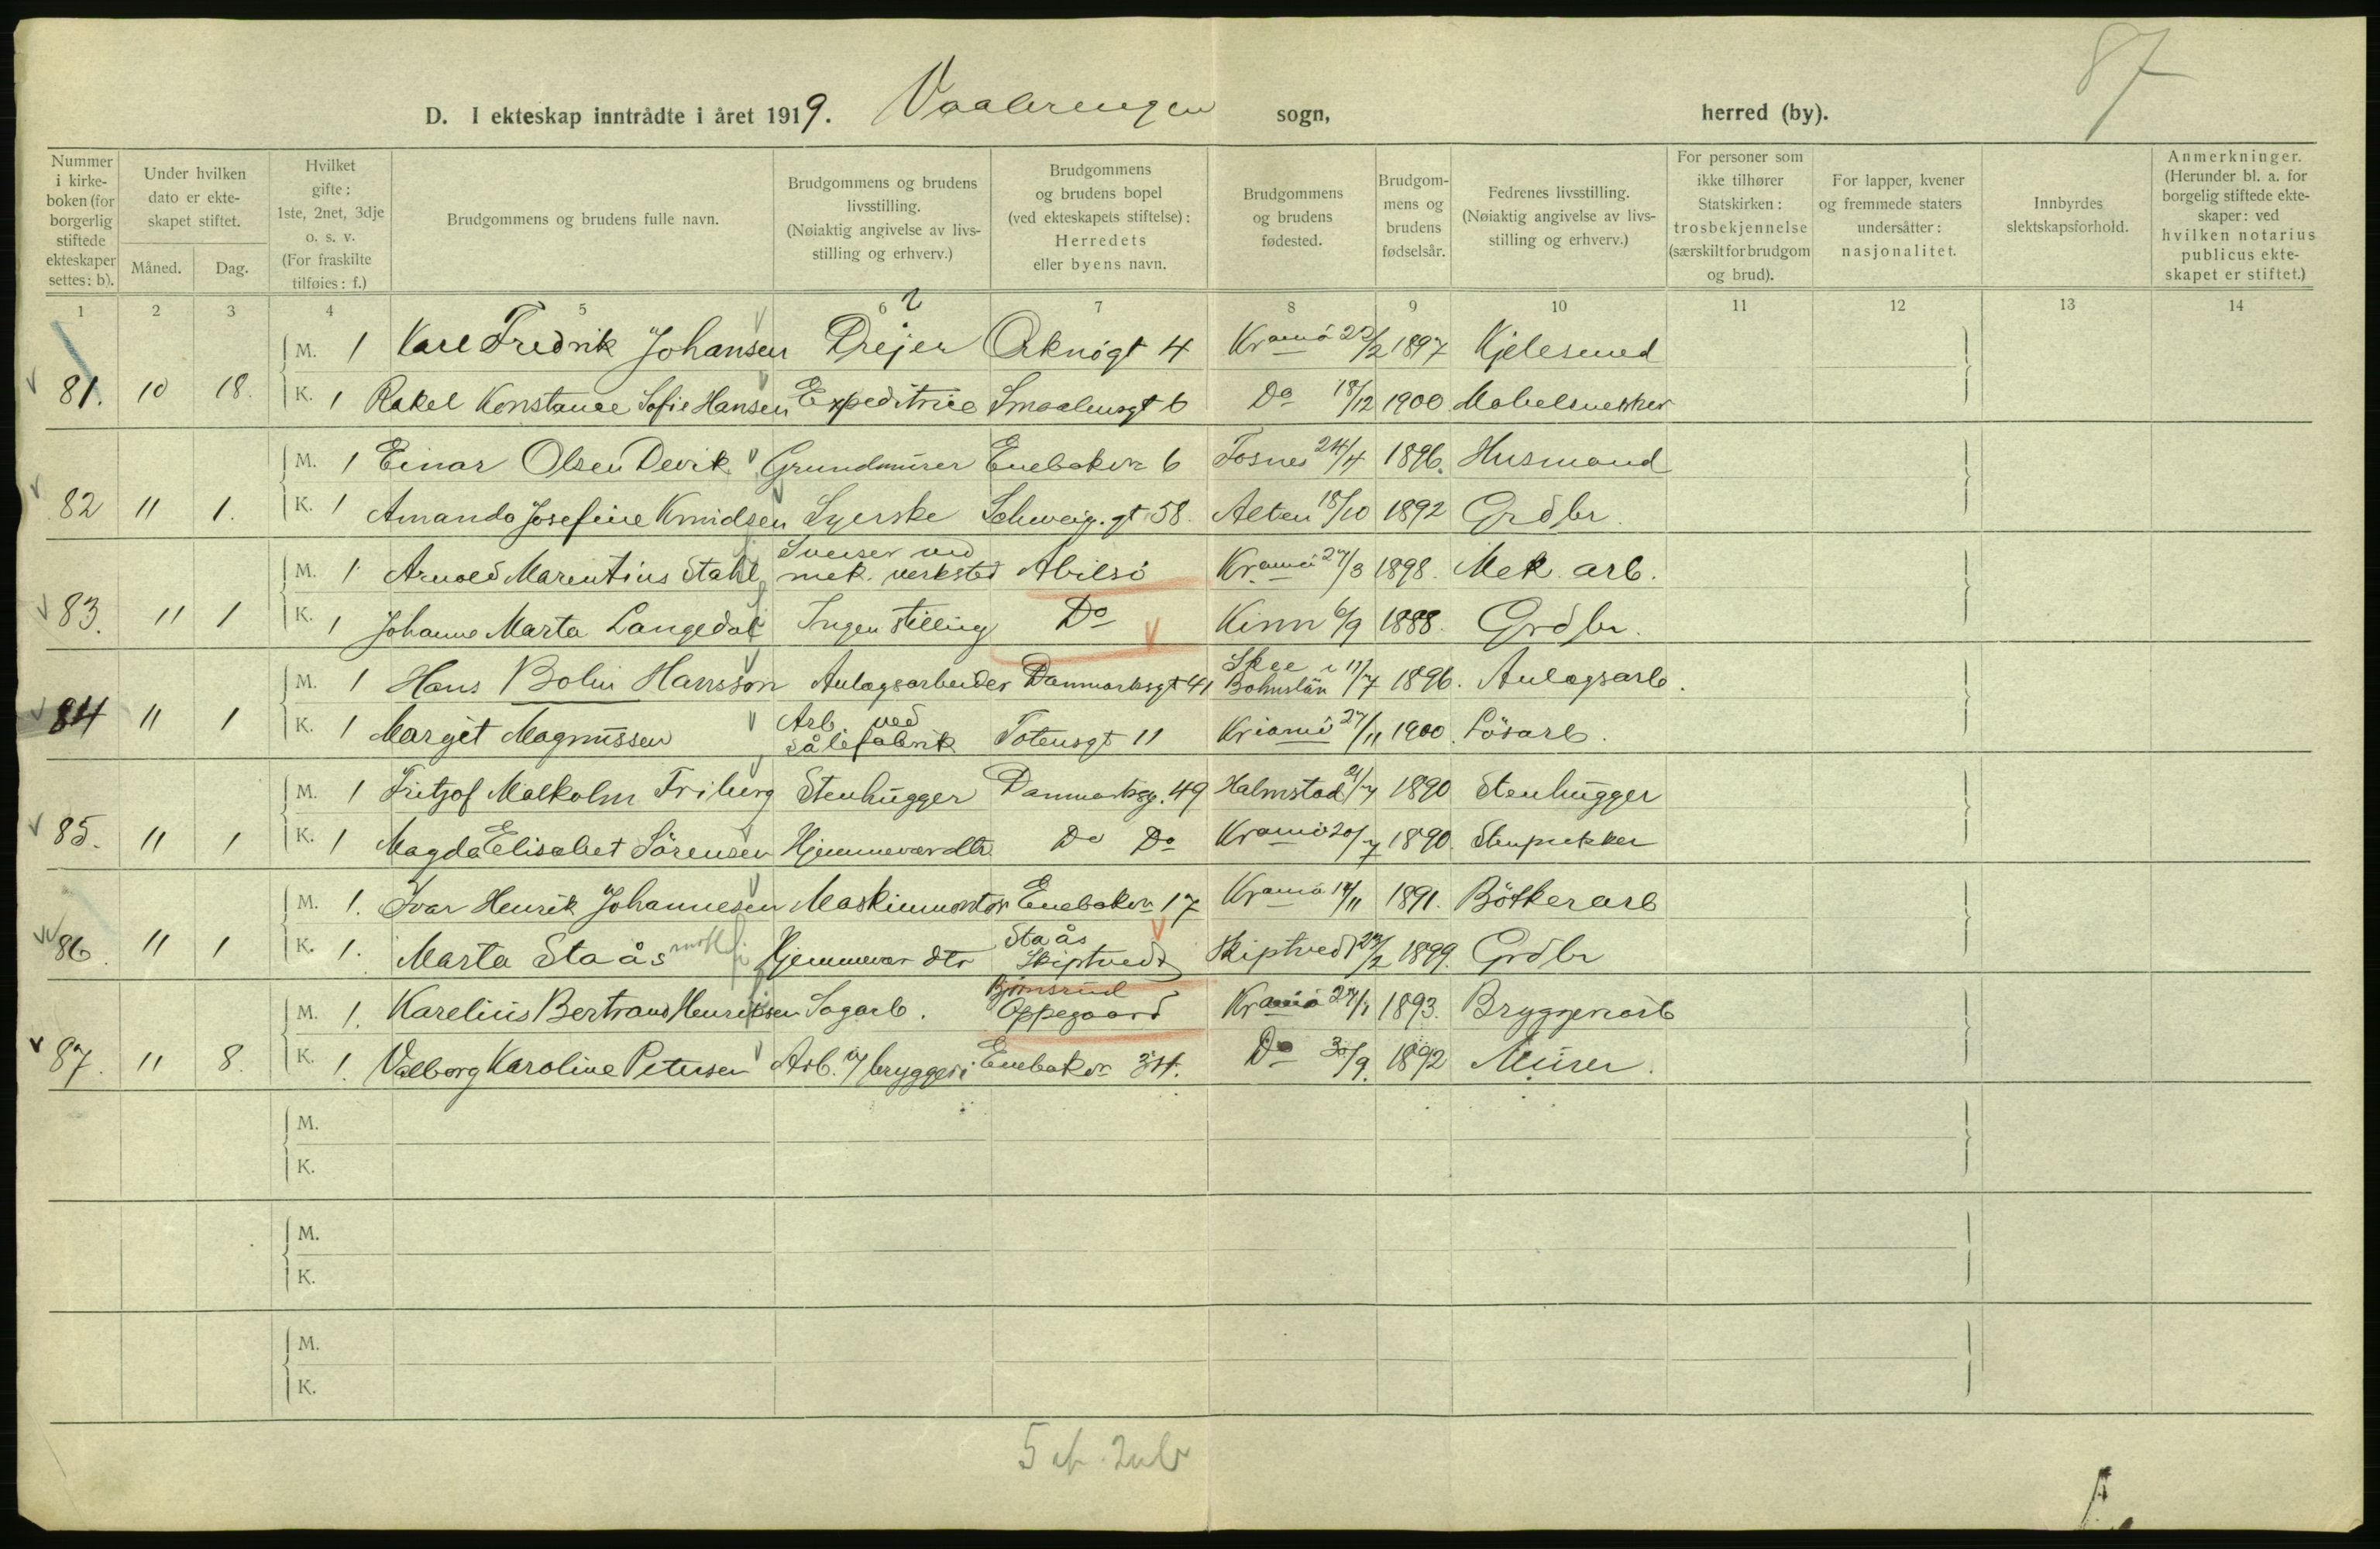 87
D. I ekteskap inntrådte i året 1919. Vaalerengen sogn, herred (by).
Nummer i kirkeboken (for borgerlig stiftede ekteskaper settes: b).
Under hvilken dato er ekteskapet stiftet.
Måned. Dag.
Hvilket gifte: 1ste, 2net, 3dje o. s. v. (For fraskilte tilføies: f.)
Brudgommens og brudens fulle navn.
Brudgommens og brudens livsstilling. (Nøiaktig angivelse av livsstilling og erhverv.)
Brudgommens og brudens bopel (ved ekteskapets stiftelse): Herredets eller byens navn.
Brudgommens og brudens fødested.
Brudgommens og brudens fødselsår.
Fedrenes livsstilling. (Nøiaktig angivelse av livsstilling og erhverv.)
For personer som ikke tilhører Statskirken: trosbekjennelse (særskilt for brudgom og brud).
For lapper, kvener og fremmede staters undersåtter: nasjonalitet.
Innbyrdes slektskapsforhold.
Anmerkninger. (Herunder bl. a. for borgelig stiftede ekteskaper: ved hvilken notarius publicus ekteskapet er stiftet.)
1 2 3 4 5 6 7 8 9 10 11 12 13 14
M. 1 Karl Fredrik Johansen Drejer Orknögt 4 Kr.aniá 22/2 1897 Kjelesmed
81. 10 18. K. 1 Rakel Konstance Sofie Hansen Expeditrice Smaalensgt 6 Do 18/12 1900 Mobelsnekker
M. 1 Einar Olsen Devik Grundmurer Enebakvn 6 Fosnes 24/4 1896. Husmand
82 11 1. K. 1 Amanda Josefine Knudsen Syerske Schweig.gt 58. Alten 18/10 1892 Grdbr.
M. 1 Arnold Marentius Stahl Sveiser ved mek. verksted Abilsö Kr.ania 27/3 1898. Mek. arb.
83. 11 1 K. 1 Johanne Marta Langedal Ingen stilling Do Kinn 6/9 1888. Grdbr.
M. 1 Hans Bolin Hansson Anlagsarbeider Danmarksgt 41 Skee i Bohuslän 11/7 1896. Anlagsarb.
84 11 1 K. 1 Margit Magnussen Arb. ved sålefabrik Totensgt 11 Kr.iania 27/11 1900. Lösarb.
M. 1 Fritjof Malkolm Friberg Stenhugger Danmarksg. 49 Halmstad 21/7 1890 Stenhugger
85. 11 1 K. 1 Magda Elisabet Sörensen Hjemmevar dtr Do Do Kr.ania 20/7 1890. Stenpukker
M. 1. Ivar Henrik Johannesen Maskinmontör Enebakvn 17 Kr.ania 14/11 1891. Bötkerarb
86. 11 1 K. 1. Marta Staås Hjemmevar dtr Staås Skiptvedt Skiptvedt 23/2 1899. Grdbr
M. 1. Karelius Bertrand Henriksen Sagarb. Björnsrud Oppegaard Kr.ania 27/1 1893. Bryggeriarb
87. 11 8. K. 1. Valborg Karoline Petersen Arb. v/ bryggeri Enebakvn 34. Do 30/9. 1892 Murer.
M.
K.
M.
K.
M.
K.